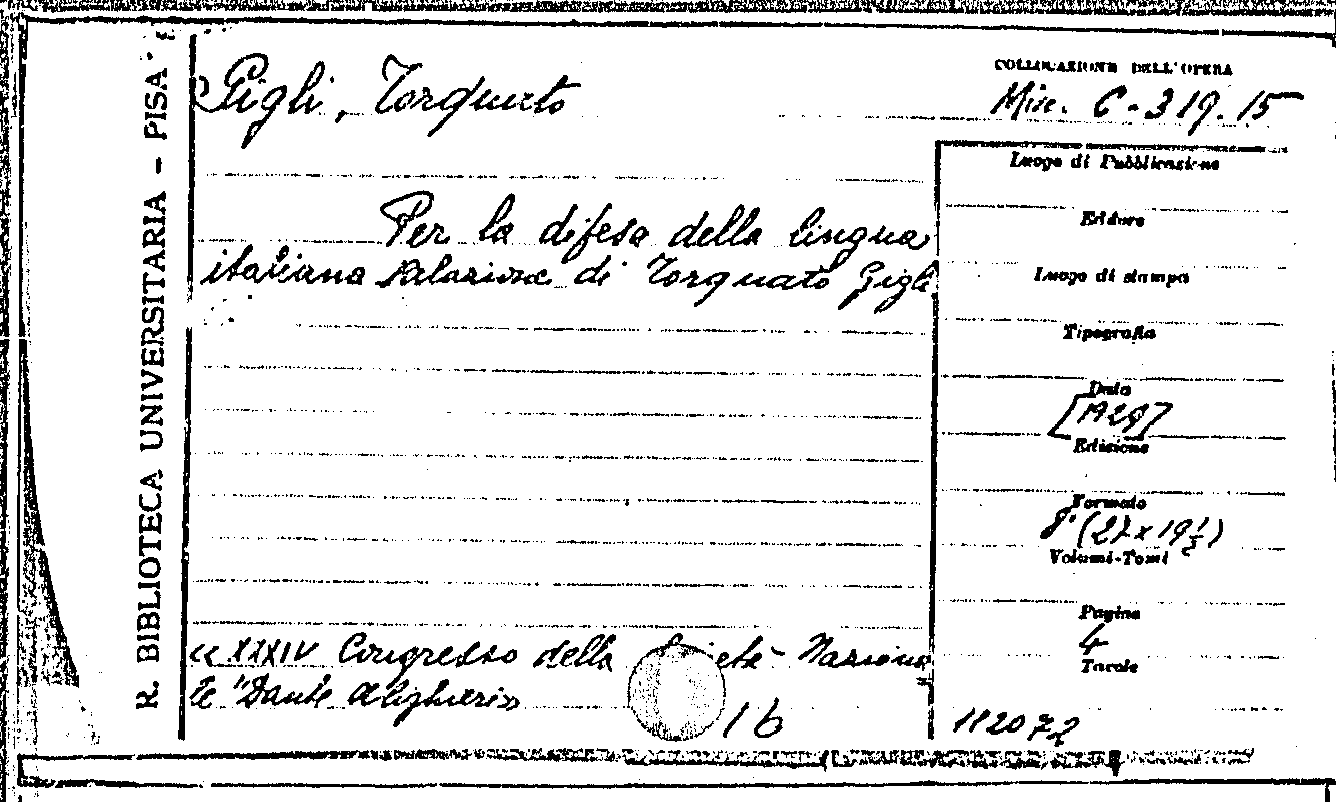 R. BIBLIOTECA UNIVERSITARIA - PISA
Gigli, Torquato
COLLOCAZIONE DELL'OPERA
Misc. C - 319. 15
Luogo di Pubblicazione
Editore
Per la difesa della lingua
italiana Relazione di Torquato Gigli
Luogo di stampa
Tipografia
Data
[1929]
Edizione
Formato
8° (27 x 19 1/2)
Volumi-Tomi
Pagine
4
Tavole
« XXXIV Congresso della Società Naziona=
le "Dante Alighieri»
16
112072